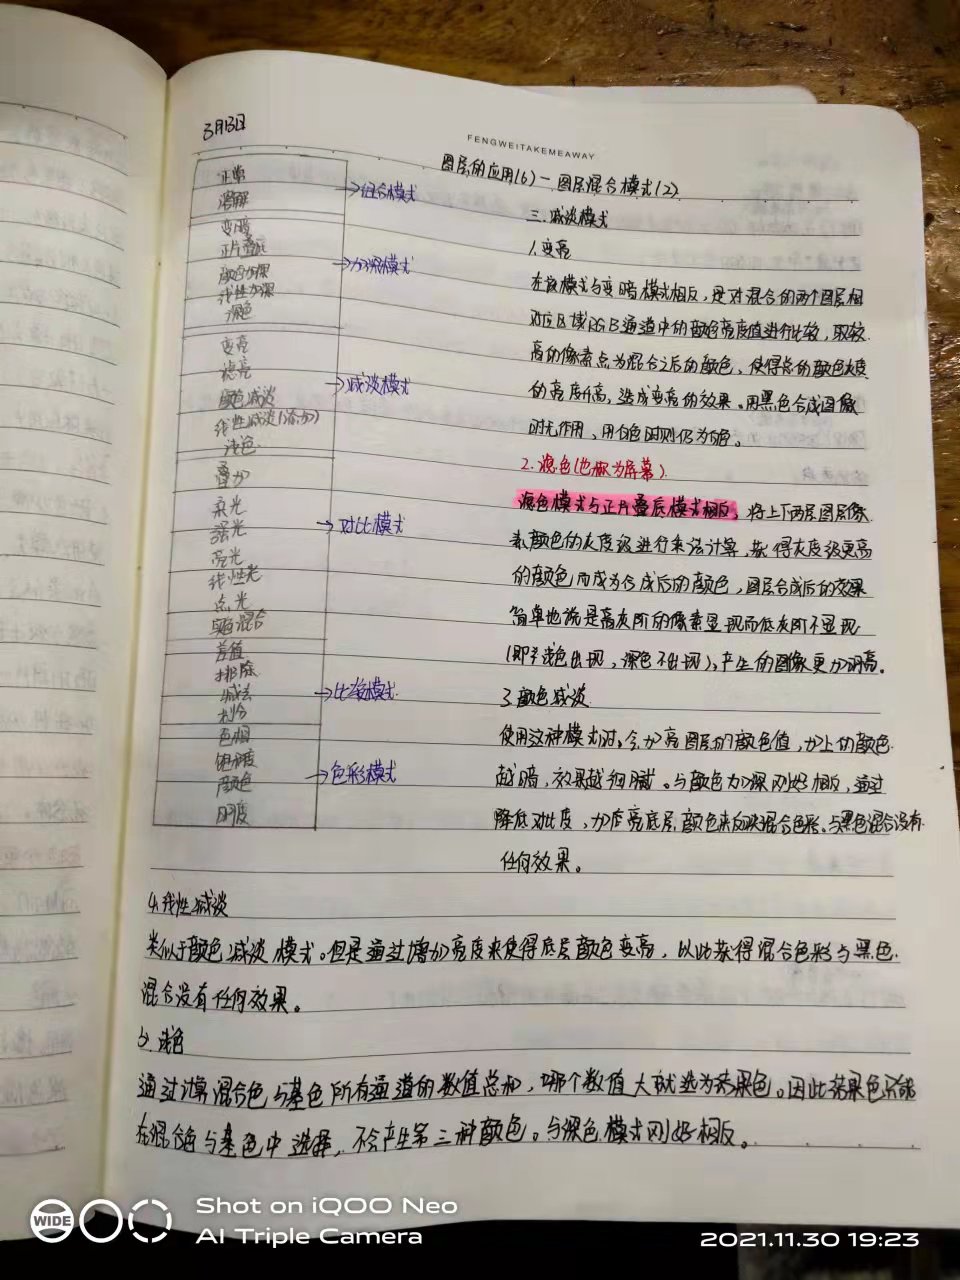 3月13日
FENGWEITAKEMEAWAY
图层的应用(6)－图层混合模式(2)
正常
溶解
→组合模式
变暗
正片叠底
颜色加深
线性加深
深色
→加深模式
变亮
滤亮
颜色减淡
线性减淡(添加)
浅色
→减淡模式
叠加
柔光
强光
亮光
线性光
点光
实色混合
→对比模式
差值
排除
减去
划分
→比较模式
色相
饱和度
颜色
明度
→色彩模式
三.减淡模式
1.变亮
在该模式与变暗模式相反,是对混合的两个图层相
对应区域RGB通道中的颜色亮度值进行比较,取较
高的像素点为混合之后的颜色,使得总的颜色灰度
的亮度升高,造成变亮的效果。用黑色合成图像
时无作用,用白色时则仍为白色。
2.滤色(也称为屏幕)
滤色模式与正片叠底模式相反,将上下两层图层像
素颜色的灰度级进行乘法计算,获得灰度级更高
的颜色而成为合成后的颜色,图层合成后的效果
简单地说是高灰阶的像素显现而低灰阶不显现
(即浅色出现,深色不出现),产生的图像更加明亮。
3.颜色减淡
使用这种模式时。会加亮图层的颜色值,加上的颜色
越暗,效果越细腻。与颜色加深刚好相反,通过
降低对比度,加亮底层颜色来反映混合色彩。与黑色混合没有
任何效果。
4.线性减淡
类似于颜色减淡模式。但是通过增加亮度来使得底层颜色变亮,以此获得混合色彩与黑色
混合没有任何效果。
5.浅色
通过计算混合色与基色所有通道的数值总和,哪个数值大就选为结果色。因此结果色只能
在混合色与基色中选择,不会产生第三种颜色。与深色模式刚好相反。
WIDE
Shot on iQOO Neo
AI Triple Camera
2021.11.30 19:23